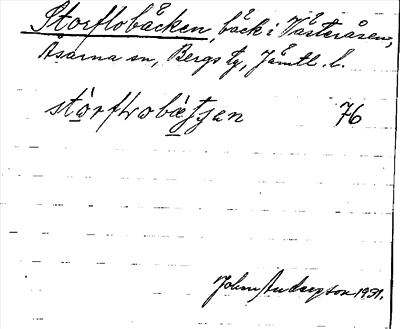 Storflobäcken, bäck i Västeråsen,
Åsarna sn, Bergs tg, Jämtl. l.
76
John Anderson 1931.